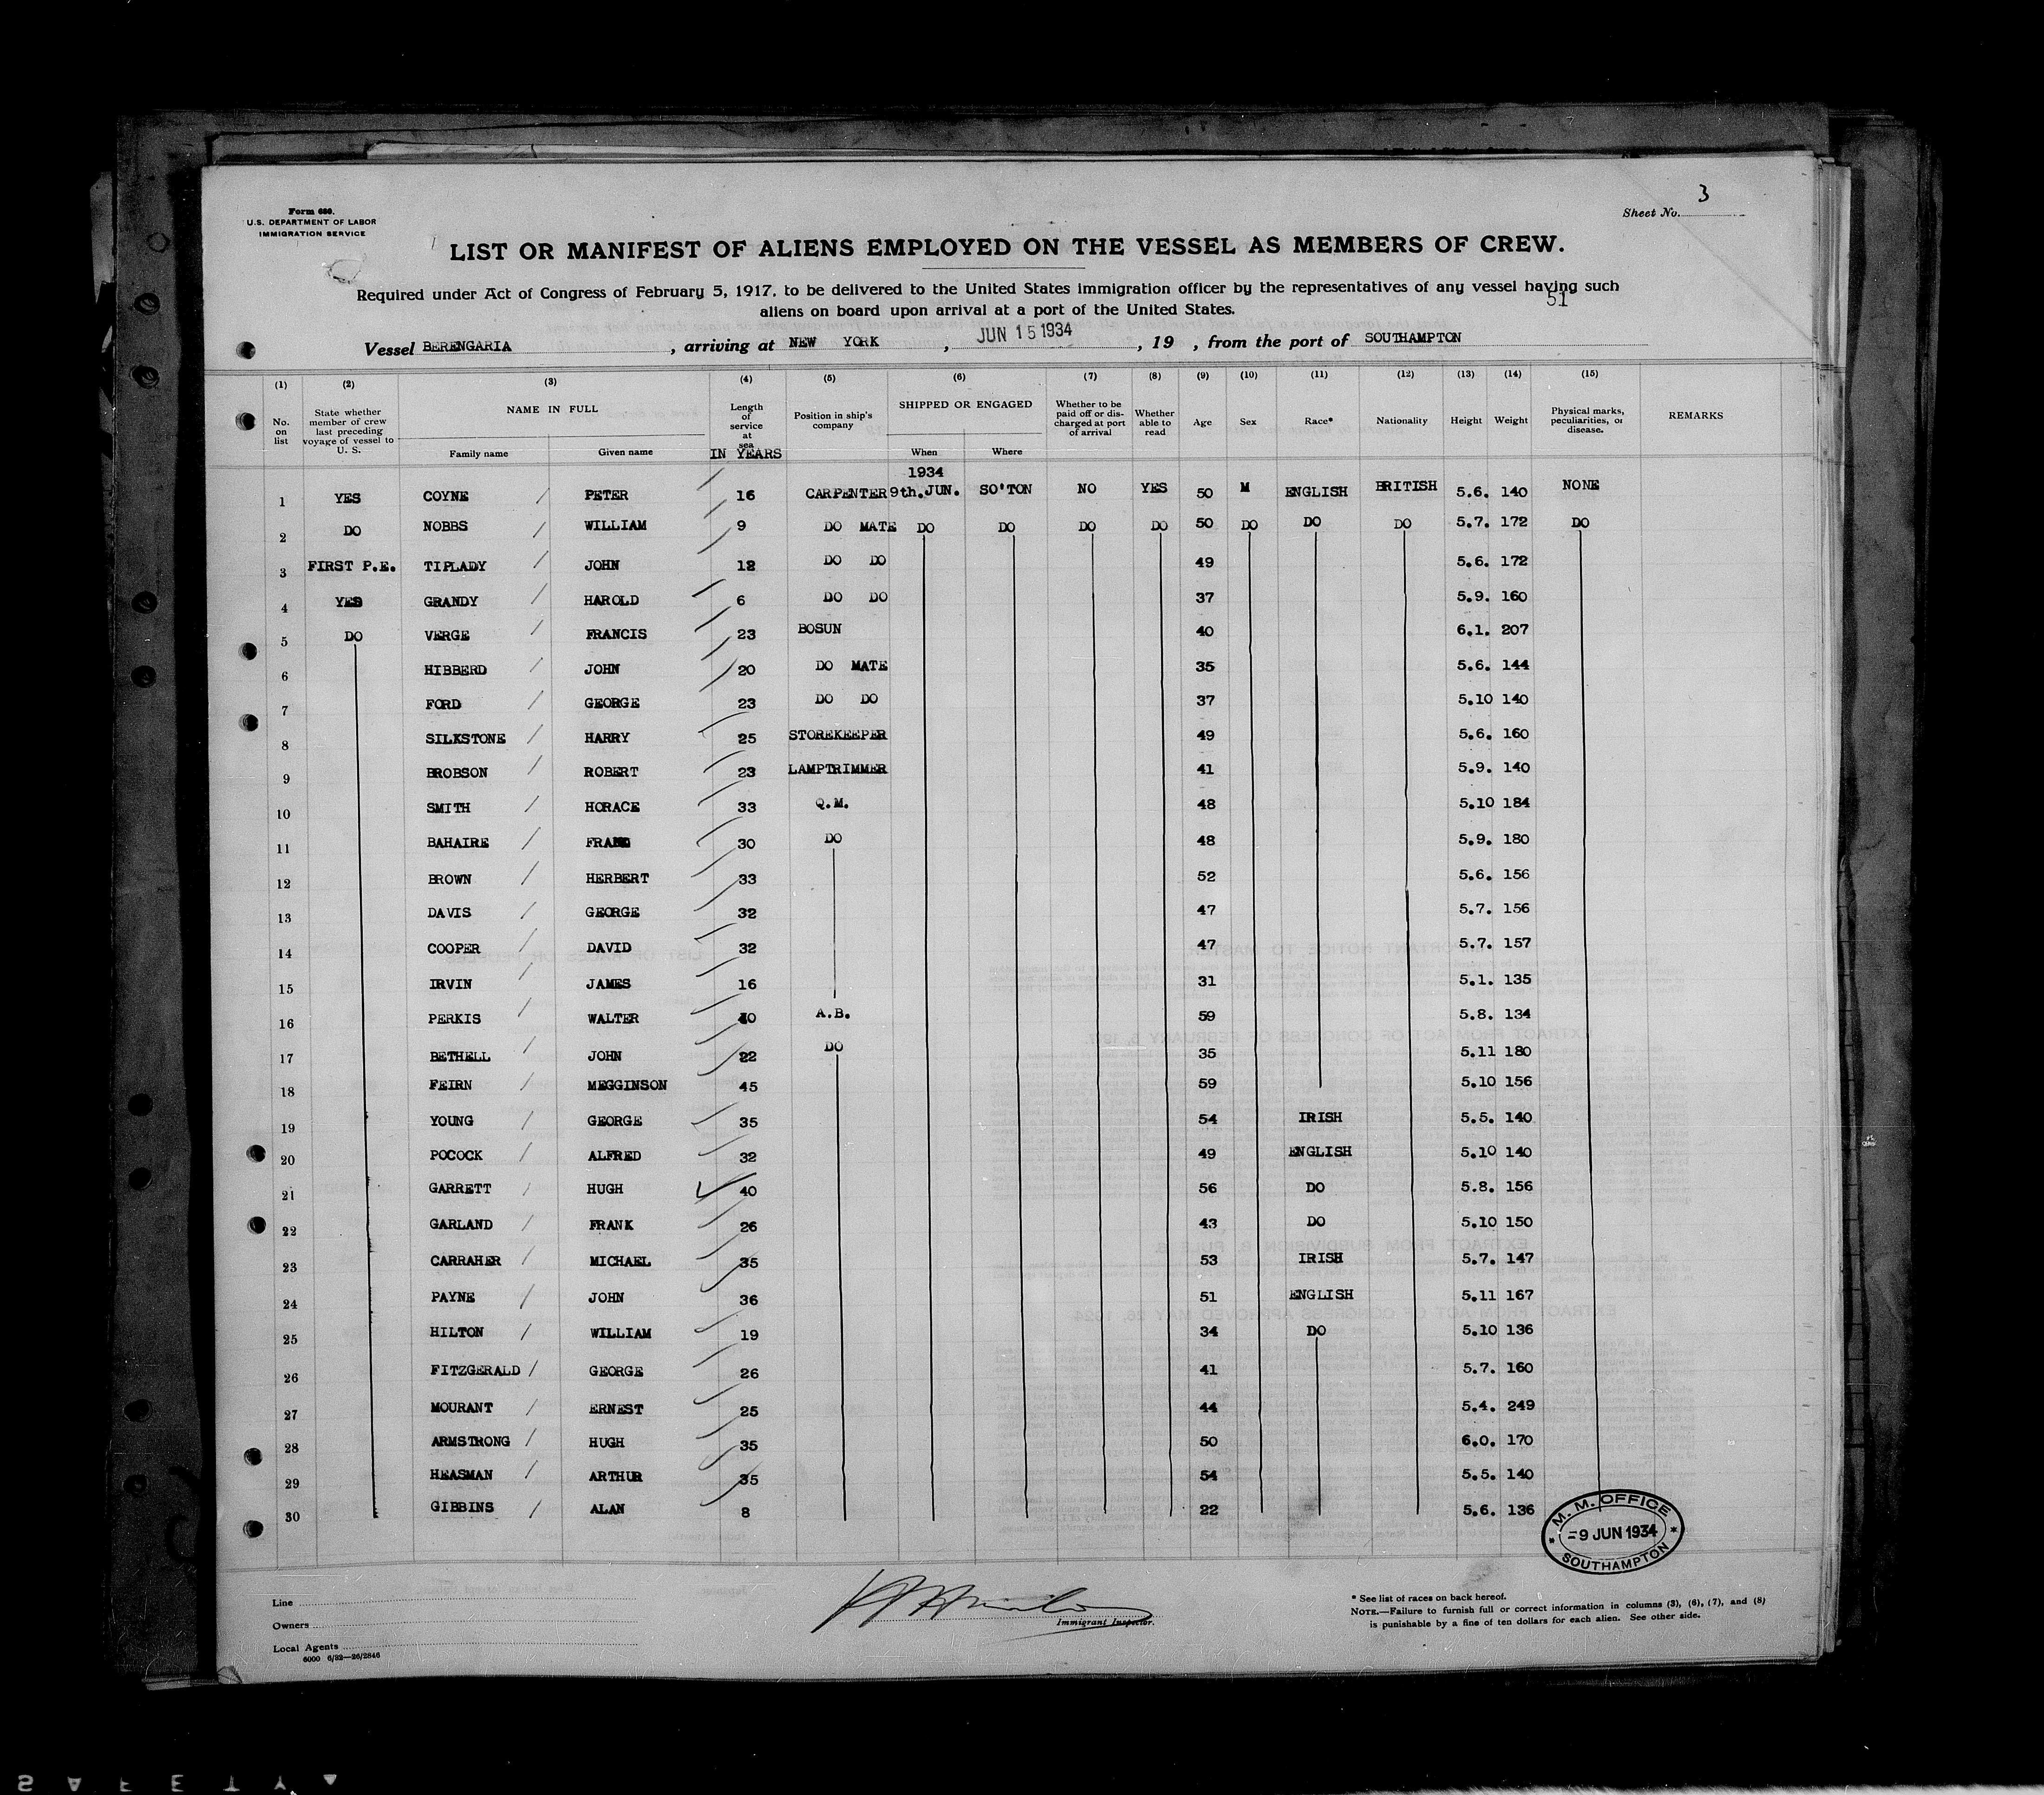 3
Form 680.
U.S. DEPARTMENT OF LABOR
IMMIGRATION SERVICE
Sheet No.
LIST OR MANIFEST OF ALIENS EMPLOYED ON THE VESSEL AS MEMBERS OF CREW.
Required under Act of Congress of February 5, 1917, to be delivered to the United States immigration officer by the representatives of any vessel having such
51
aliens on board upon arrival at a port of the United States.
Vessel BERENGARIA, arriving at NEW YORK, JUN 15 1934, 19 , from the port of SOUTHAMPTON
(1) (2) (3) (4) (5) (6) (7) (8) (9) (10) (11) (12) (13) (14) (15)
No. on list State whether member of crew last preceding voyage of vessel to U. S. NAME IN FULL Family name Given name Length of service at sea IN YEARS Position in ship's company SHIPPED OR ENGAGED When Where Whether to be paid off or discharged at port of arrival Whether able to read Age Sex Race* Nationality Height Weight Physical marks, peculiarities, or disease. REMARKS
1934
1 YES COYNE / PETER 16 CARPENTER 9th.JUN. SO'TON NO YES 50 M ENGLISH BRITISH 5.6. 140 NONE
2 DO NOBBS / WILLIAM 9 DO MATE DO DO DO DO 50 DO DO DO 5.7. 172 DO
3 FIRST P.E. TIPLADY / JOHN 12 DO DO 49 5.6. 172
4 YES GRANDY / HAROLD 6 DO DO 37 5.9. 160
5 DO VERGE / FRANCIS 23 BOSUN 40 6.1. 207
6 HIBBERD / JOHN 20 DO MATE 35 5.6. 144
7 FORD / GEORGE 23 DO DO 37 5.10 140
8 SILKSTONE / HARRY 25 STOREKEEPER 49 5.6. 160
9 BROBSON / ROBERT 23 LAMPTRIMMER 41 5.9. 140
10 SMITH / HORACE 33 Q.M. 48 5.10 184
11 BAHAIRE / 30 DO 48 5.9. 180
12 BROWN / HERBERT 33 52 5.6. 156
13 DAVIS / GEORGE 32 47 5.7. 156
14 COOPER / DAVID 32 47 5.7. 157
15 IRVIN / JAMES 16 31 5.1. 135
16 PERKIS / WALTER 40 A.B. 59 5.8. 134
17 BETHELL / JOHN 22 DO 35 5.11 180
18 FEIRN / MEGGINSON 45 59 5.10 156
19 YOUNG / GEORGE 35 54 IRISH 5.5. 140
20 POCOCK / ALFRED 32 49 ENGLISH 5.10 140
21 GARRETT / HUGH 40 56 DO 5.8. 156
22 GARLAND / FRANK 26 43 DO 5.10 150
23 CARRAHER / MICHAEL 35 53 IRISH 5.7. 147
24 PAYNE / JOHN 36 51 ENGLISH 5.11 167
25 HILTON / WILLIAM 19 34 DO 5.10 136
26 FITZGERALD / GEORGE 26 41 5.7. 160
27 MOURANT / ERNEST 25 44 5.4. 249
28 ARMSTRONG / HUGH 35 50 6.0. 170
29 HEASMAN / ARTHUR 35 54 5.5. 140
30 GIBBINS / ALAN 8 22 5.6. 136
M. M. OFFICE
-9 JUN 1934
SOUTHAMPTON
Line
Owners
Local Agents
6000 6/32—26/2846
Immigrant Inspector.
* See list of races on back hereof.
NOTE.—Failure to furnish full or correct information in columns (3), (6), (7), and (8)
is punishable by a fine of ten dollars for each alien. See other side.
SAFETY